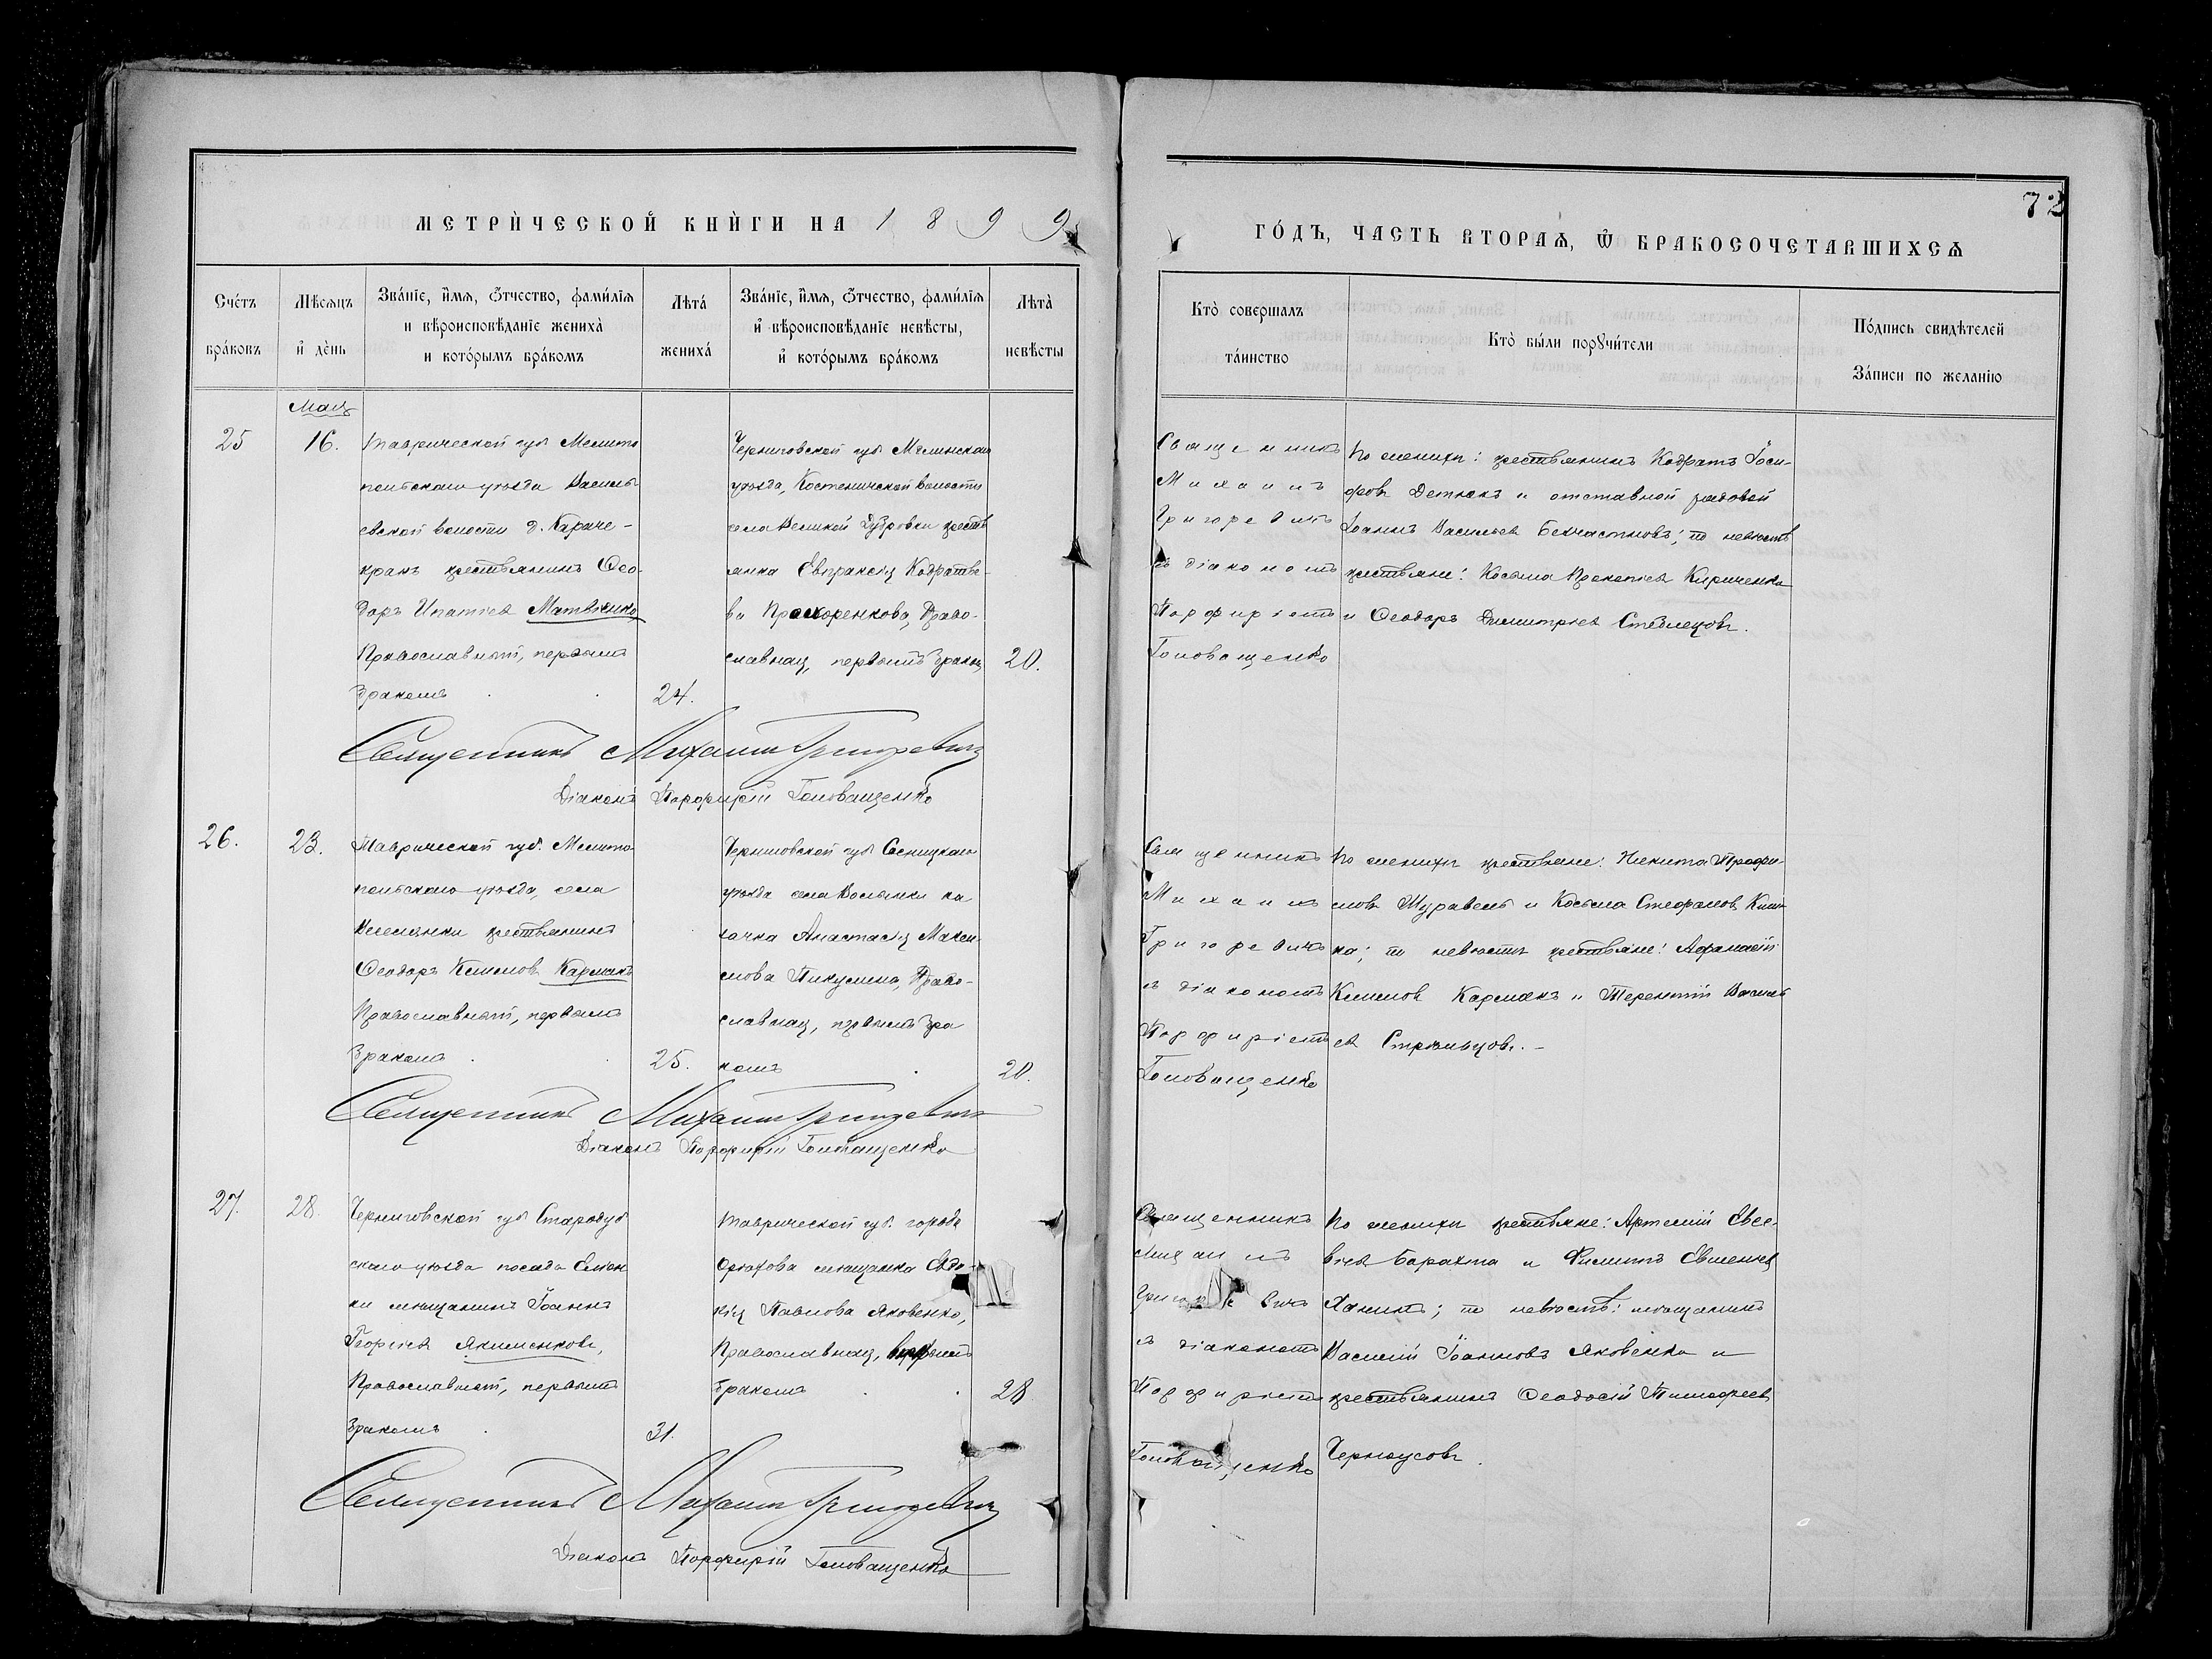 72
МЕТРИ́ЧЕСКОЙ КНИ́ГИ НА 1899
ГО́ДЪ, ЧАСТЬ ВТОРАѦ, Ѿ БРАКОСОЧЕТАВШИХСѦ
Сче́тъ бра́ковъ
Мѣсѧцъ и҆ дѐнь
Зва́нїе, и҆́мѧ, ѻ҆́тчество, фами́лїѧ
и вѣроисповѣданїе жениха̀
и кото́рымъ бра́комъ
Лѣта́ жениха́
Зва́нїе, и҆́мѧ, ѻ҆́тчество, фами́лїѧ
и҆ вѣроисповѣданїе невѣсты,
и҆ кото́рымъ бра́комъ
Лѣта̀ невѣсты
Кто̀ совершалъ та́инство
Кто̀ бы́ли порꙋчи́тели
По́дпись свидѣтелей
За́писи по желанїю
Мая
25
16.
Таврической губ Мелито
польскаго уѣзда Василь
евской волости д. Караче-
кракъ крестьянинъ Ѳео-
доръ Ипатіевъ Матвіенко
Православный, первымъ
бракомъ
24.
Черниговской губ Мглинскаго
уѣзда, Костеничской волости
села Великой Дубровки кресть
янка Евпраксія Кодратье-
ва Прохоренкова, Право-
славная, первымъ бракомъ
20.
Священникъ
Михаилъ
Григоревичъ
съ діакономъ
Порфиріемъ
Головащенко
по женихѣ: крестьянинъ Кодратъ Іоси-
фовъ Детюкъ и отставной рядовой
Іоаннъ Васильевъ Безчастновъ; по невѣстѣ
крестьяне: Косьма Прокопіевъ Кириченко
и Ѳеодоръ Димитріевъ Стеблецовъ.
Священникъ Михаилъ Григоревичъ
Діаконъ Порфирій Головащенко
26.
23.
Таврической губ. Мелито
польскаго уѣзда, села
Веселянки крестьянинъ
Ѳеодоръ Климовъ Карманъ
Православный, первымъ
бракомъ
25.
Черниговской губ Сосницкаго
уѣзда села Волынки ка
зачка Анастасія Макси-
мова Пикулина, Право-
славная, первымъ бра
комъ
20.
Священникъ
Михаилъ
Григоревичъ
съ діакономъ
Порфиріемъ
Головащенко
по женихѣ крестьяне: Никита Трофи-
мовъ Журавель и Косьма Стефановъ
; по невѣсты крестьяне: Аѳанасій
Климовъ Карманъ и Терентій Василь
евъ Стрѣльцовъ.-
Священникъ Михаилъ Григоревичъ
Діаконъ Порфирій Головащенко
27.
28.
Черниговской губ Стародуб
скаго уѣзда посада Семен
ки мѣщанинъ Іоаннъ
Георгіевъ Якименковъ,
Православный, первымъ
бракомъ
31.
Таврической губ. города
Орѣхова мѣщанка Евдо-
кія Павлова Яковенко,
Православная,
бракомъ
28
Священникъ
Михаилъ
Григоревичъ
съ діакономъ
Порфиріемъ
Головащенко
по женихѣ крестьяне: Артемій Евсе-
віевъ Барахта и Филиппъ
Ханинъ; по невѣстѣ: мѣщанинъ
Василій Іоанновъ Яковенко и
крестьянинъ Ѳеодосій Тимофеевъ
Черноусовъ.
Священникъ Михаилъ Григоревичъ
Діаконъ Порфирій Головащенко